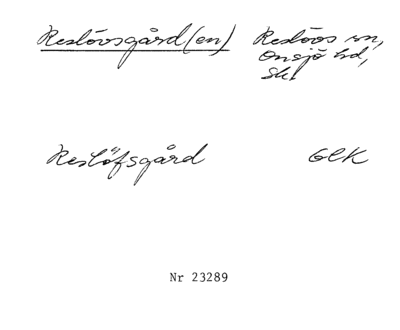 Reslövsgård(en) Reslövs sn,
Onsjö hd,
Sk.
Reslöfsgård GEK
Nr 23289